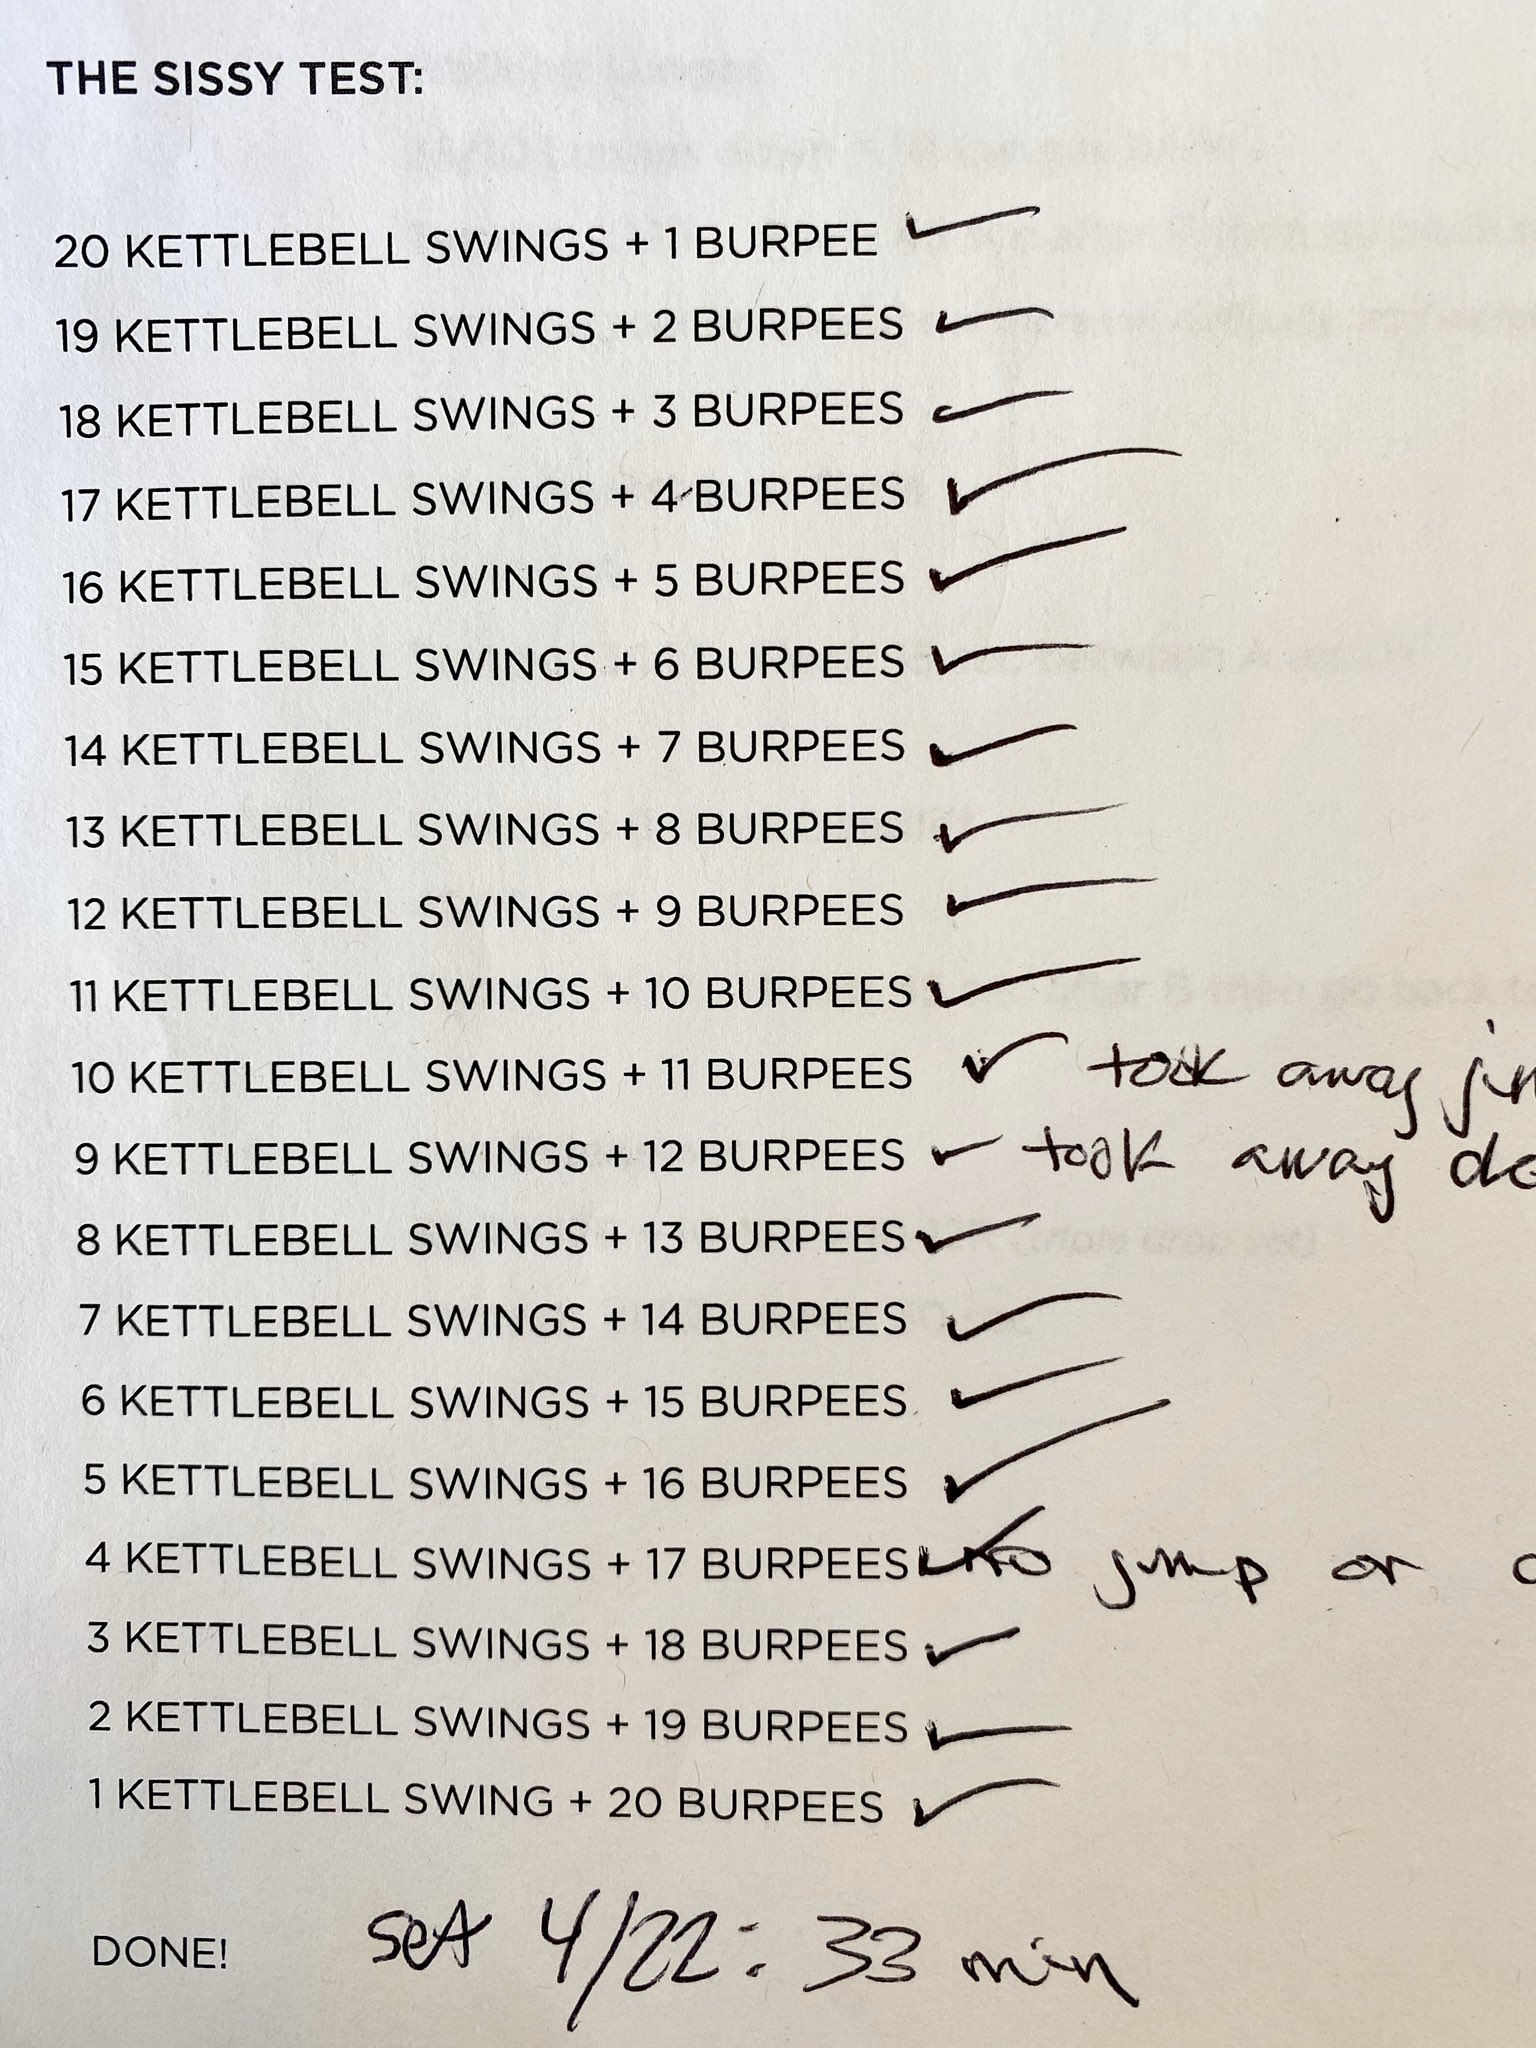 THE SISSY TEST:
20 KETTLEBELL SWINGS + 1 BURPEE
19 KETTLEBELL SWINGS + 2 BURPEES
18 KETTLEBELL SWINGS + 3 BURPEES
17 KETTLEBELL SWINGS + 4 BURPEES
16 KETTLEBELL SWINGS + 5 BURPEES
15 KETTLEBELL SWINGS + 6 BURPEES
14 KETTLEBELL SWINGS + 7 BURPEES
13 KETTLEBELL SWINGS + 8 BURPEES
12 KETTLEBELL SWINGS + 9 BURPEES
11 KETTLEBELL SWINGS + 10 BURPEES
10 KETTLEBELL SWINGS + 11 BURPEES ✓ took away
9 KETTLEBELL SWINGS + 12 BURPEES ✓ took away
8 KETTLEBELL SWINGS + 13 BURPEES
7 KETTLEBELL SWINGS + 14 BURPEES
6 KETTLEBELL SWINGS + 15 BURPEES
5 KETTLEBELL SWINGS + 16 BURPEES
4 KETTLEBELL SWINGS + 17 BURPEES ✓ no jump or
3 KETTLEBELL SWINGS + 18 BURPEES
2 KETTLEBELL SWINGS + 19 BURPEES
1 KETTLEBELL SWING + 20 BURPEES
DONE! 4/22: 33 min